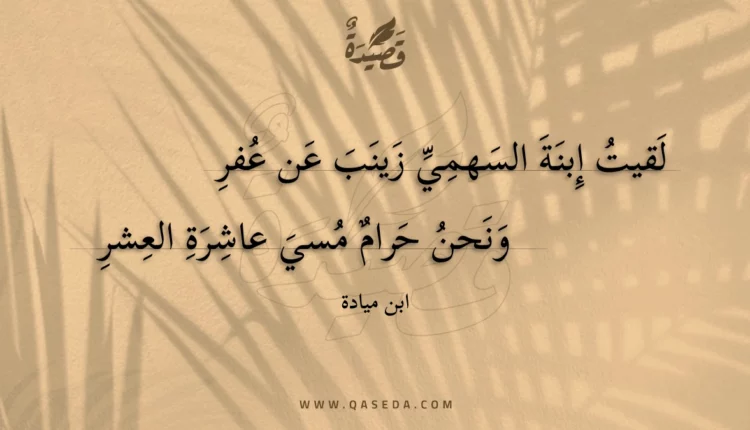 قَصِيْدَةٌ
لَقيتُ إِبنَةَ السَهمِيِّ زَينَبَ عَن عُفرِ
وَنَحنُ حَرامٌ مُسيَ عاشِرَةِ العِشرِ
ابن ميادة
WWW.QASEDA.COM